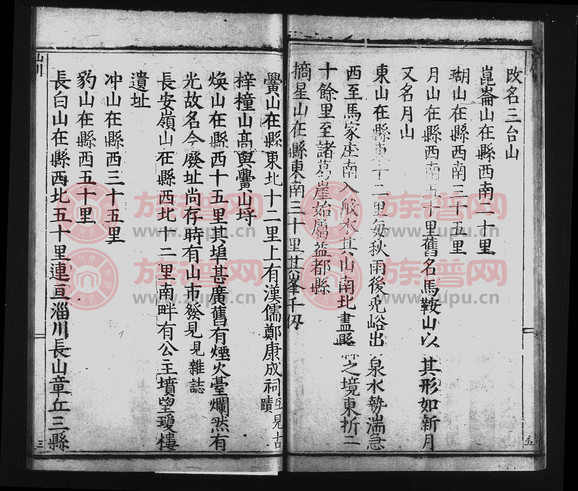 改名三台山
崑崙山在縣西南二十里
瑚山在縣西南三十五里
月山在縣西南五十里舊名馬鞍山以其形如新月
又名月山
東山在縣東十二里每秋雨後兎峪出泉水勢湍急
西至馬家庄南入般水其山南北盡縣之境東折二
十餘里至諸葛崖始屬益都縣
摘星山在縣東南三十里其峯千仞
黌山在縣東北十二里上有漢儒鄭康成祠里見古蹟
梓橦山高與黌山埒
煥山在縣西十五里其埠甚廣舊有煙火臺爛然有
光故名今廢址尚存時有山市發見見雜誌
長安嶺山在縣西北十二里南畔有公主墳望瓊樓
遺址
冲山在縣西三十五里
豹山在縣西五十里
長白山在縣西北五十里連亘淄川長山章丘三縣
山川
三
五
族譜网
www.zupu.cn
族譜网
www.zupu.cn